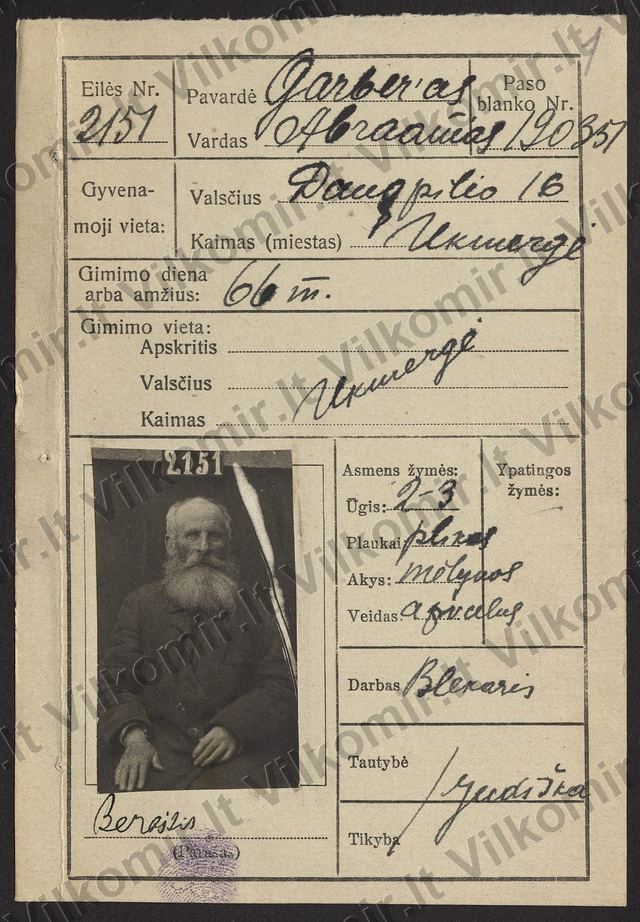 Eilės Nr.
2151
Pavardė Garber'as
Vardas Abraomas
Paso
blanko Nr.
190351
Gyvena-
moji vieta:
Valsčius Daugpilio 16
Kaimas (miestas) Ukmergė
Gimimo diena
arba amžius: 66 m.
Gimimo vieta:
Apskritis
Valsčius
Kaimas
Ukmergė
2151
Asmens žymės:
Ūgis: 2-3
Plaukai plikas
Akys: mėlynos
Veidas: apvalus
Ypatingos
žymės:
Darbas Blekoris
Tautybė
Tikyba
Žydiška
Beraštis
(Parašas)
Vilkomir.lt